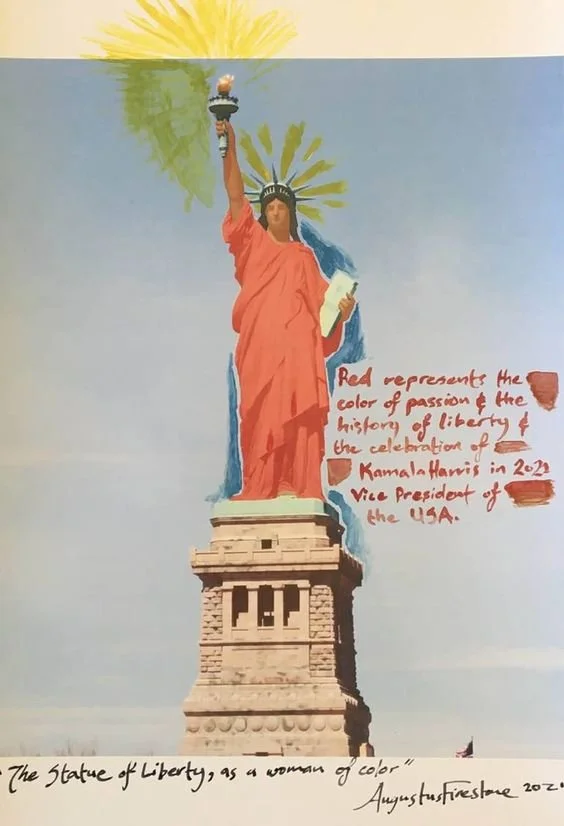 Red represents the
color of passion & the
history of liberty &
the celebration of
Kamala Harris in 2021
Vice President of
the USA.
"The Statue of Liberty, as a woman of color"
Augustus Firestone 202